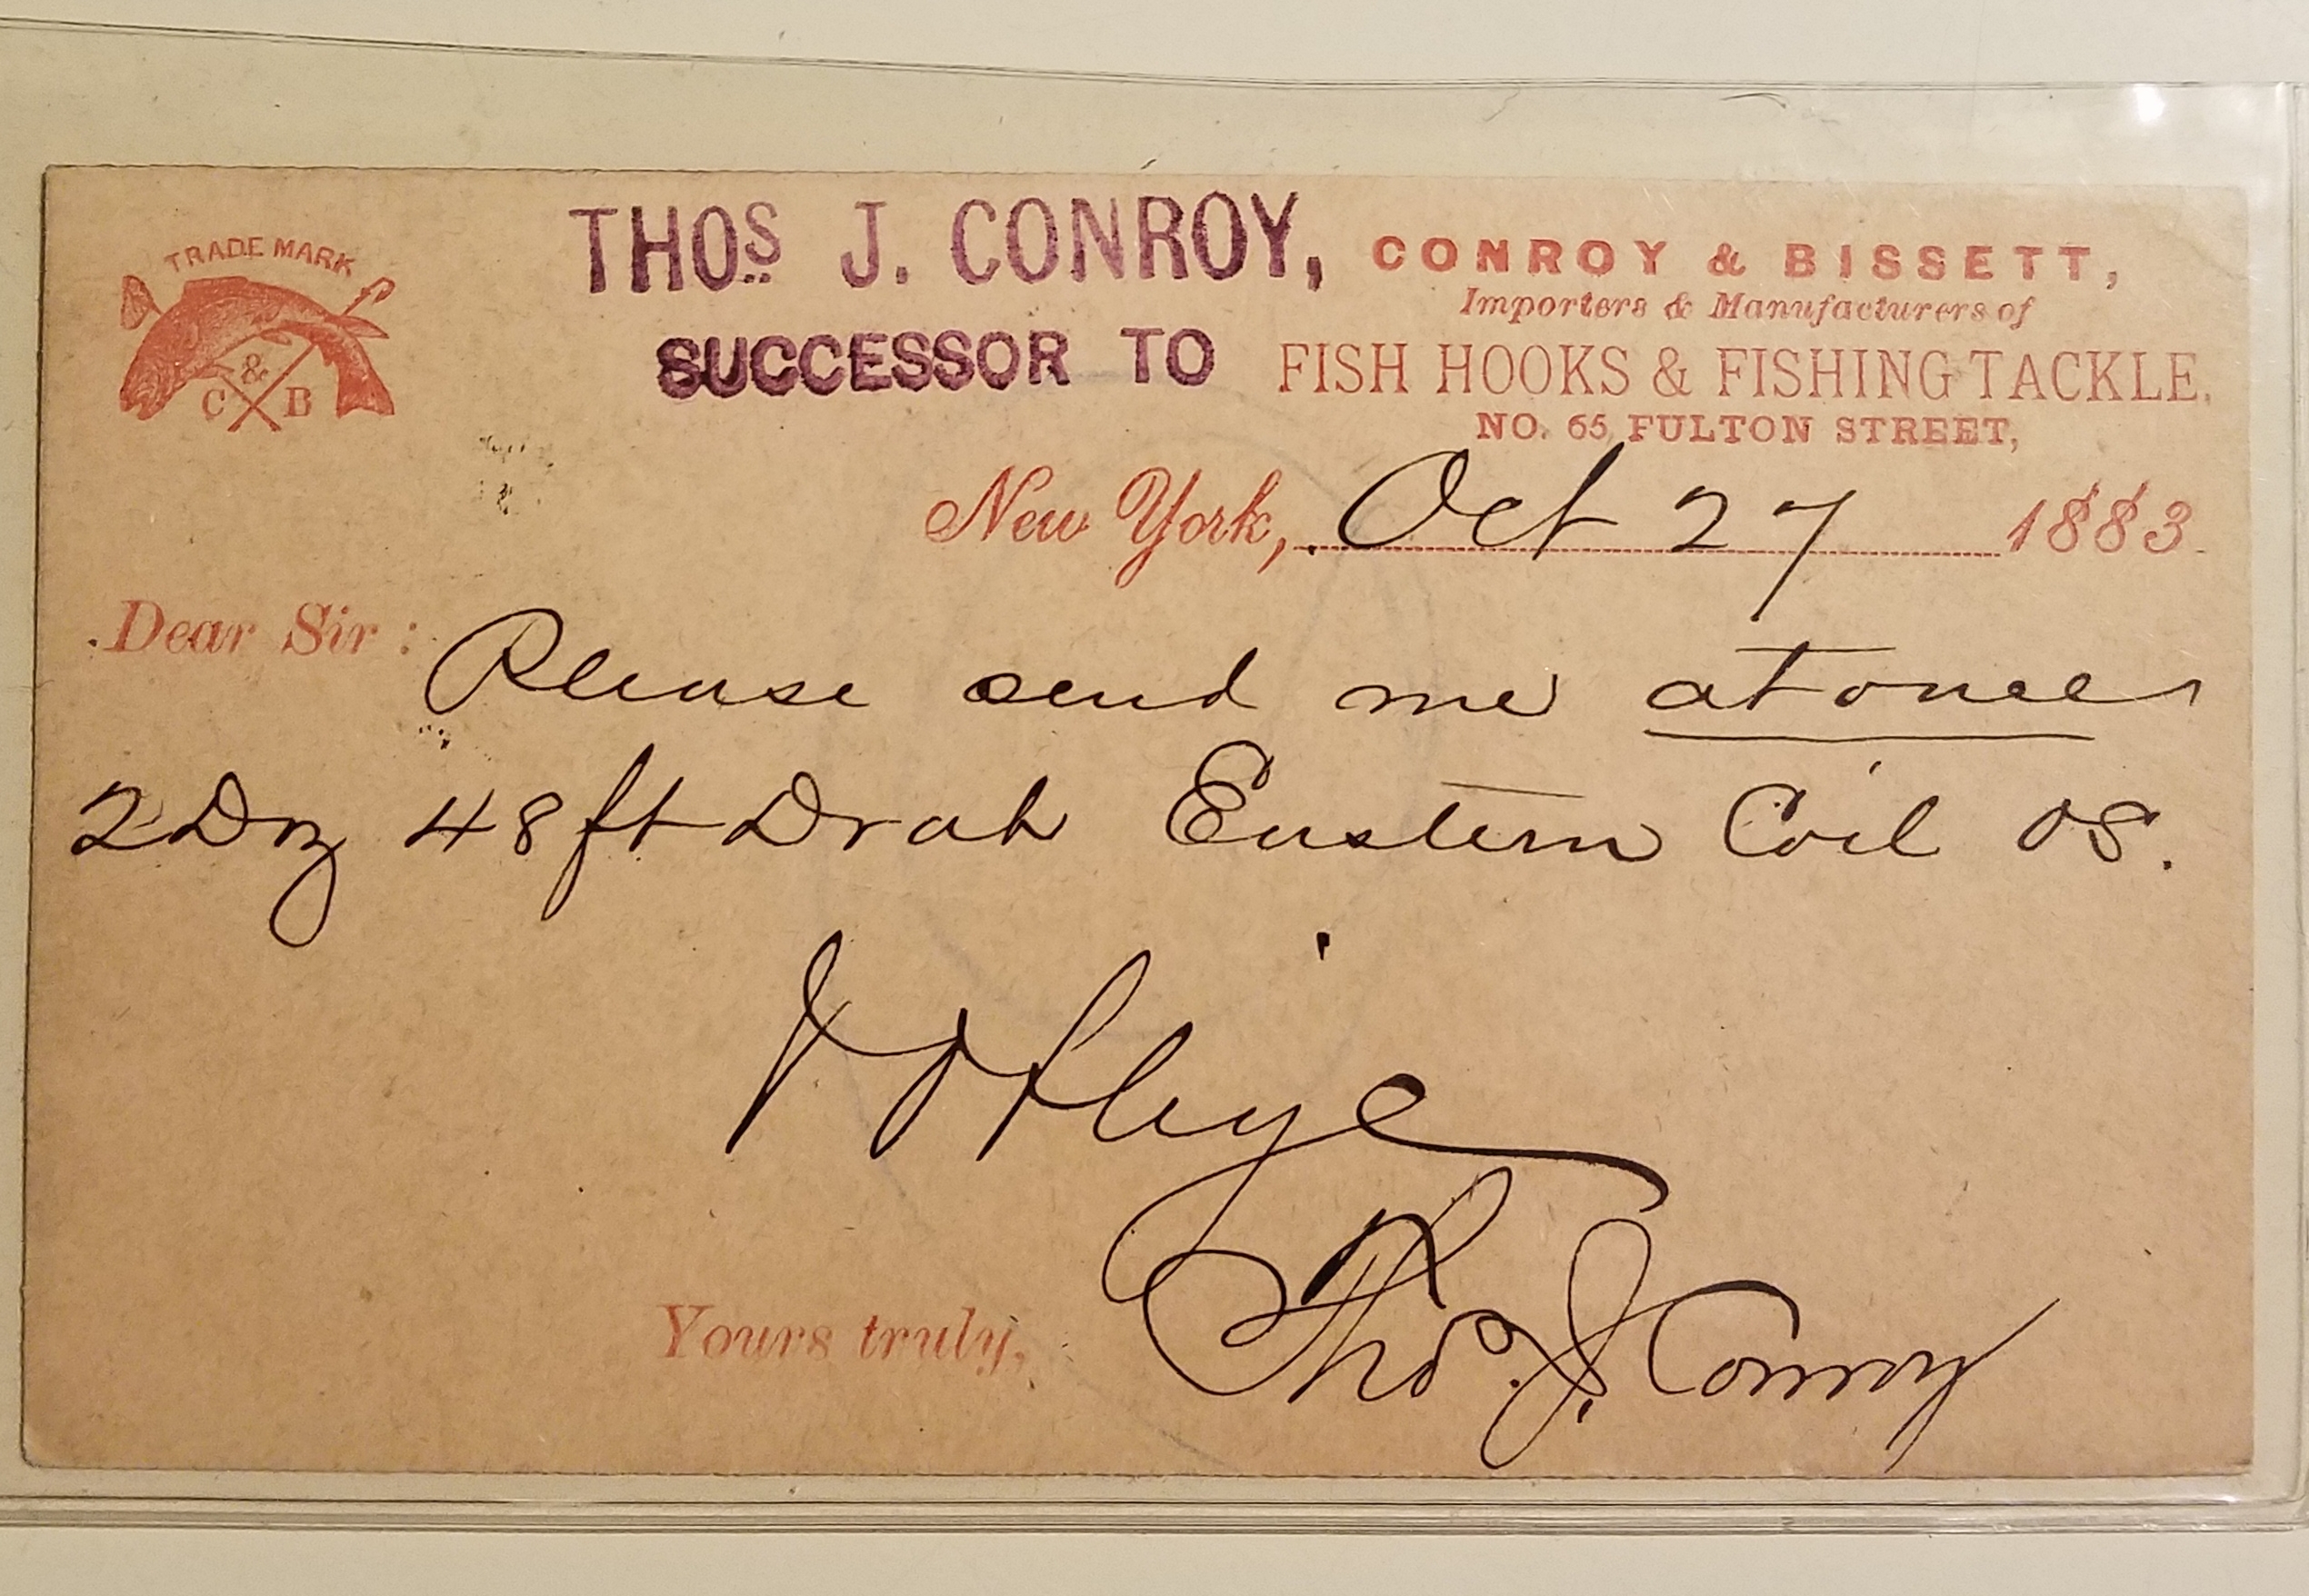 TRADE MARK
C & B
THOS J. CONROY,
SUCCESSOR TO
CONROY & BISSETT,
Importers & Manufacturers of
FISH HOOKS & FISHING TACKLE.
NO. 65 FULTON STREET,
New York, Oct 27 1883.
Dear Sir: Please send me at once
2 Doz 48 ft Drab Eastern Coil OS.
Oblige
Yours truly, Thos. J. Conroy